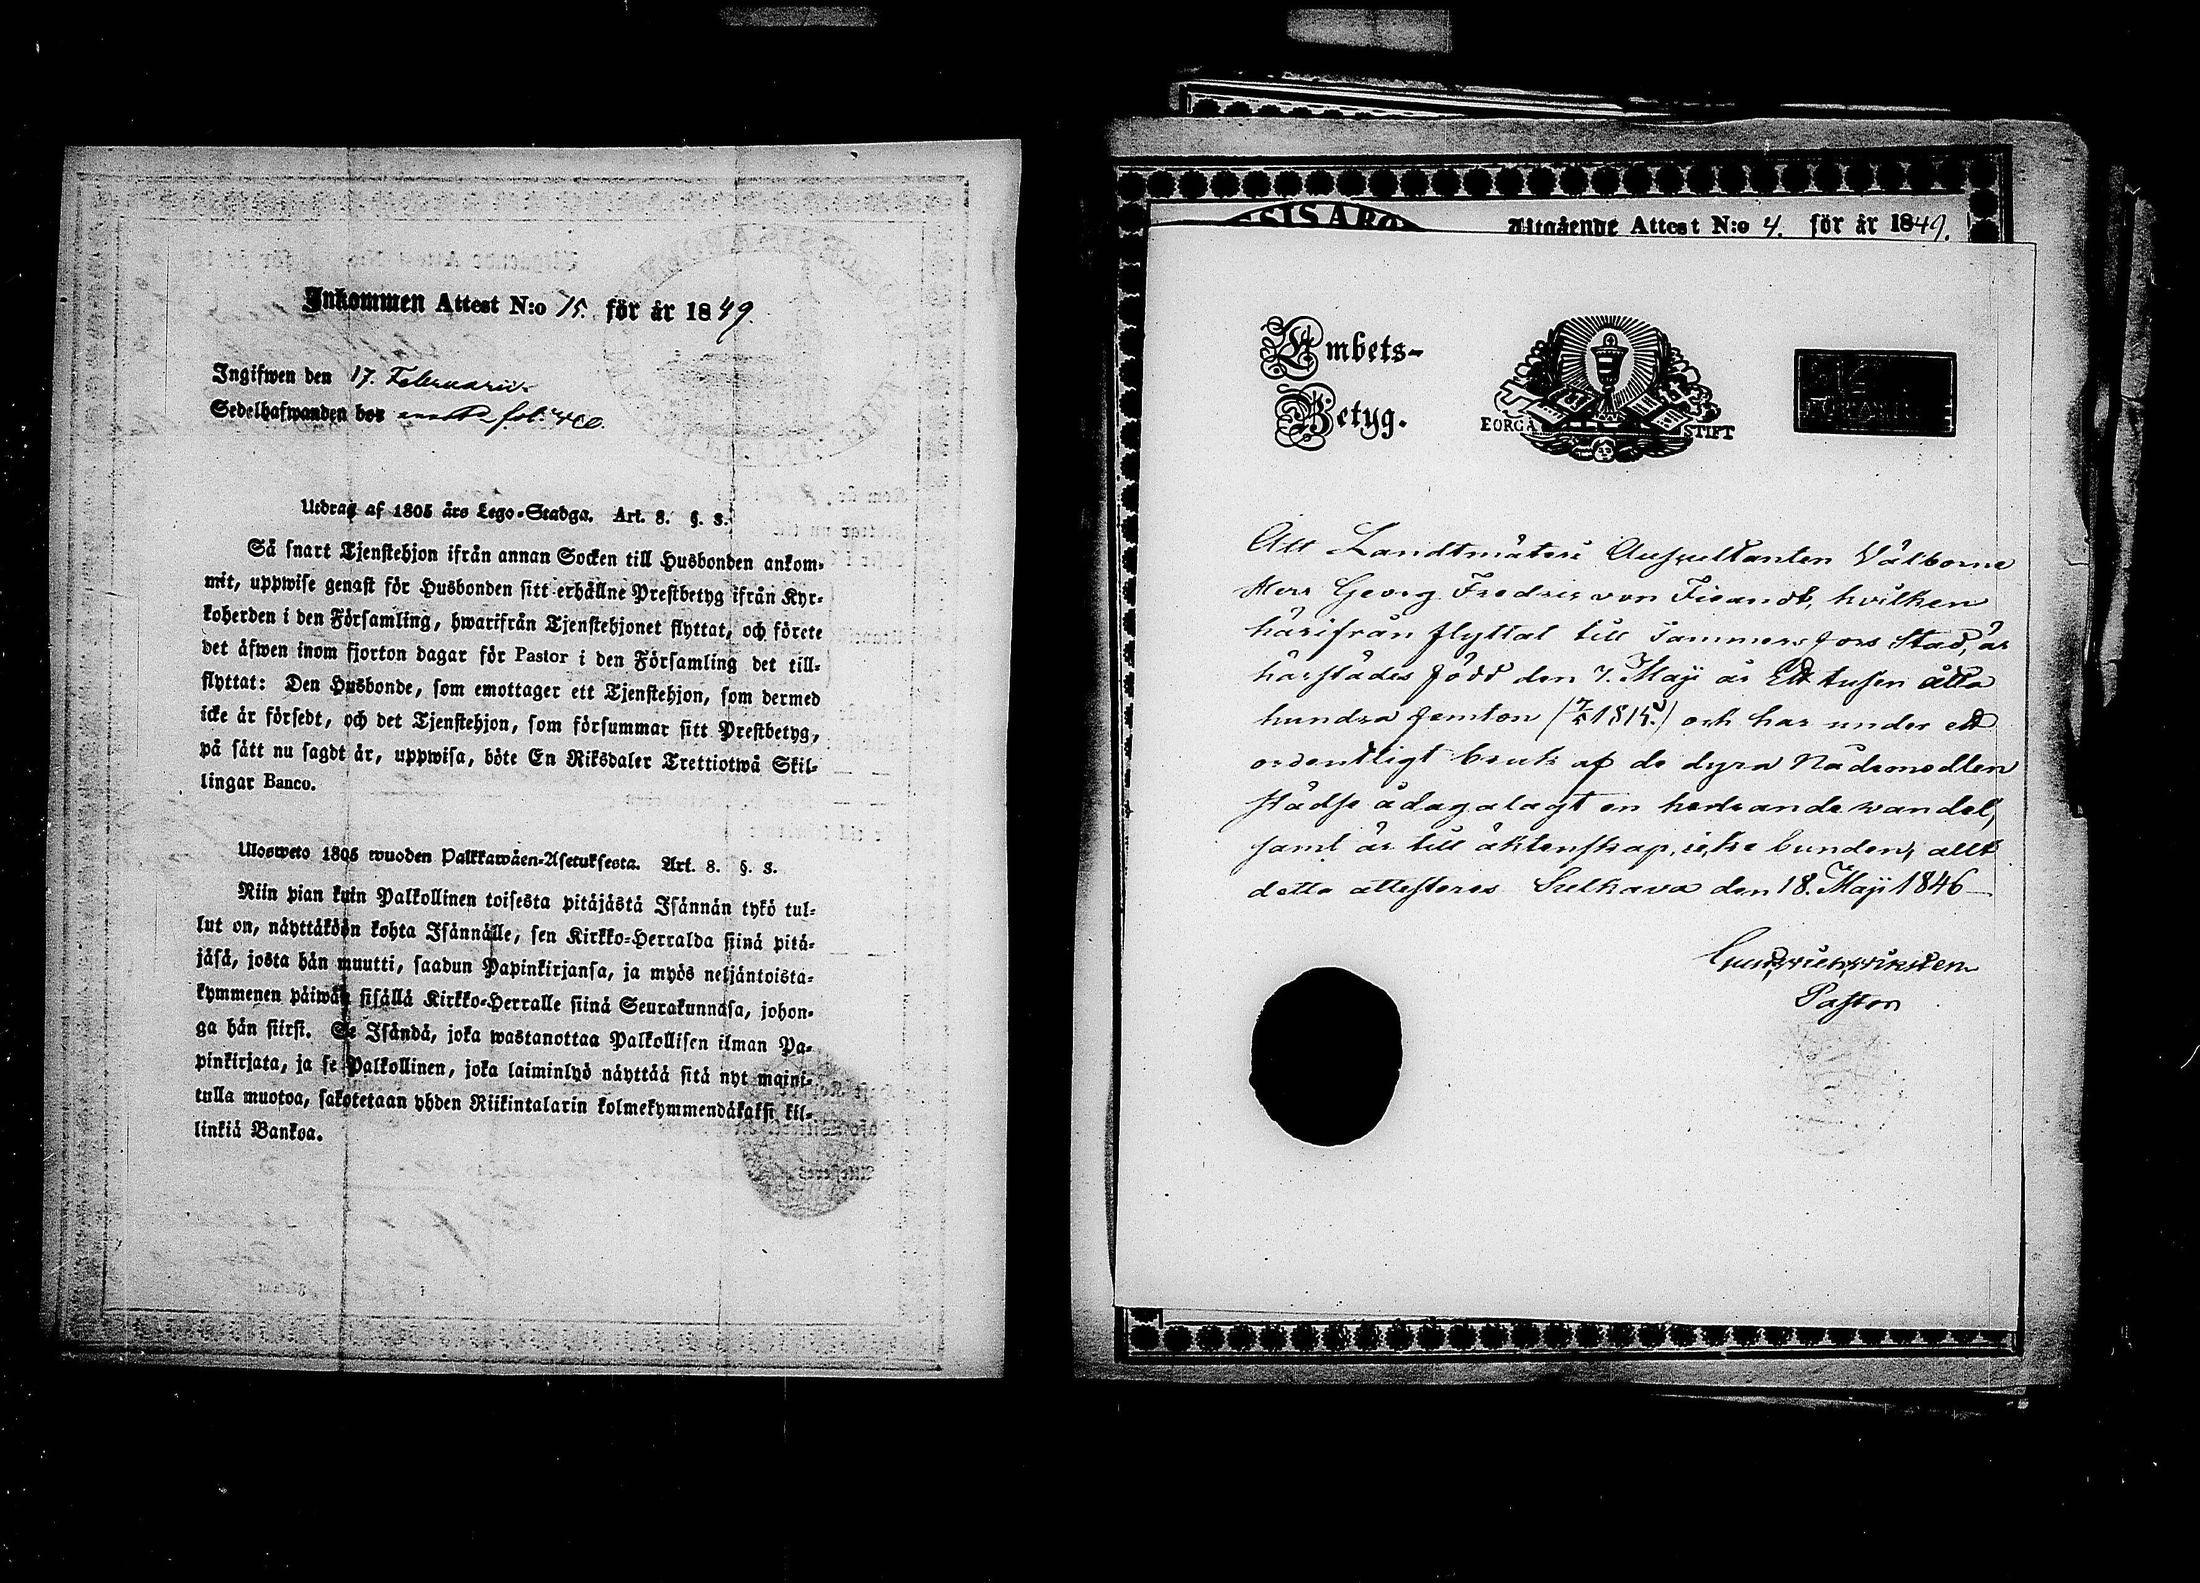 Inkommen Attest N:o 15. för år 1849.
Ingifwen den 17. Februarii.
Sedelhafwanden bor fol. 460.
Utdrag af 1805 års Lego-Stadga. Art. 8. §. 3.
Så snart Tjenstehjon ifrån annan Socken till Husbonden ankom-
mit, uppwise genast för Husbonden sitt erhållne Prestbetyg ifrån Kyr-
koherden i den Församling, hwarifrån Tjenstehjonet flyttat, och förete
det äfwen inom fjorton dagar för Pastor i den Församling det till-
flyttat: Den Husbonde, som emottager ett Tjenstehjon, som dermed
icke är försedt, och det Tjenstehjon, som försummar sitt Prestbetyg,
på sätt nu sagdt är, uppwisa, böte En Riksdaler Trettiotwå Skil-
lingar Banco.
Ulosweto 1805 wuoden Palkkawäen-Asetuksesta. Art. 8. §. 3.
Niin pian kuin Palkollinen toisesta pitäjästä Isännän tykö tul-
lut on, näyttäköön kohta Isännälle, sen Kirkko-Herralda siinä pitä-
jäsä, josta hän muutti, saadun Papinkirjansa, ja myös neljäntoista-
kymmenen päiwän sisällä Kirkko-Herralle siinä Seurakunnasa, johon-
ga hän siirsi. Se Isändä, joka wastanottaa Palkollisen ilman Pa-
pinkirjata, ja se Palkollinen, joka laiminlyö näyttää sitä nyt maini-
tulla muotoa, sakotetaan yhden Riikintalarin kolmekymmendäkaksi kil-
linkiä Bankoa.
Utgående Attest N:o 4. för år 1849.
Embets-
Betyg.
BORGÅ STIFT
Att Landtmäteri Auscultanten Välborne
Herr Georg Fredric von Fieandt, hvilken
härifrån flyttat till Tammerfors Stad, är
härstädes född den 7. Maji år Ett tusen åtta
hundra femton (7/5 1815.) och har under ett
ordentligt bruk af de dyra Nådemedlen
städse ådagalagt en hedrande vandel,
samt är till äktenskap icke bunden; allt
detta attesteres Sulkava den 18. Maji 1846
Pastor